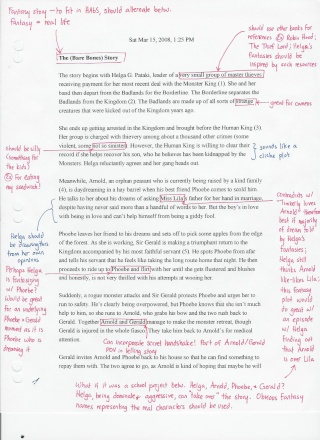 Fantasy story - to fit in BABS, should alternate betw.
Fantasy = real life
Sat Mar 15, 2008, 1:25 PM
should use other books for
references. Ex Robin Hood;
The Thief Lord; Helga's
Fantasies should be
inspired by such resources
The (Bare Bones) Story
The story begins with Helga G. Pataki, leader of a very small group of master thieves,
receiving payment for her most recent deal with the Monster King (1). She and her
band then depart from the Badlands for the Borderline. The Borderline separates the
Badlands from the Kingdom (2). The Badlands are made up of all sorts of strange
creatures that were kicked out of the Kingdom years ago.
great for cameos
She ends up getting arrested in the Kingdom and brought before the Human King (3).
Her group is charged with thievery among about a thousand other crimes (some
violent, some not so sinister). However, the Human King is willing to clear their
record if she helps recover his son, who he believes has been kidnapped by the
Monsters. Helga reluctantly agrees and her gang heads out.
should be silly
(something for
the kids?)
Ex For eating
my sandwich!
sounds like a
cliche plot
Meanwhile, Arnold, an orphan peasant who is currently being raised by a kind family
(4), is daydreaming in a hay barrel when his best friend Phoebe comes to scold him.
He talks to her about his dreams of asking Miss Lila's father for her hand in marriage,
despite having never said more than a handful of words to her. But the boy's in love
with being in love and can't help himself from being a giddy fool.
Helga should
be drawing this
from her own
opinions
Phoebe leaves her friend to his dreams and sets off to pick some apples from the edge
of the forest. As she is working, Sir Gerald is making a triumphant return to the
Kingdom accompanied by his most faithful servant (5). He spots Phoebe from afar
and tells his servant that he feels like taking the long route home that night. He then
proceeds to ride up to Phoebe and flirt with her until she gets flustered and blushes
and honestly, is not very thrilled with his attempts at wooing her.
Perhaps Helga
is fantasizing
w/ Phoebe?
Would be great
for an underlying
Phoebe + Gerald
moment as it is
Phoebe who is
dreaming it
Suddenly, a rogue monster attacks and Sir Gerald protects Phoebe and urges her to
run to safety. He's clearly being overpowered, but Phoebe knows that she isn't much
help to him, so she runs to Arnold, who grabs his bow and the two rush back to
Gerald. Together Arnold and Gerald manage to make the monster retreat, though
Gerald is injured in the whole fiasco. They take him back to Arnold's for medical
attention.
Can incorporate secret handshake! Part of Arnold/Gerald
POV in telling story
Gerald invites Arnold and Phoebe back to his house so that he can find something to
repay them with. The two agree to go, as Arnold is kind of hoping that he may will
What if it was a school project betw. Helga, Arnold, Phoebe, + Gerald?
Helga, being dominate + aggressive, can take over the story. Obvious fantasy
names representing the real characters should be used.